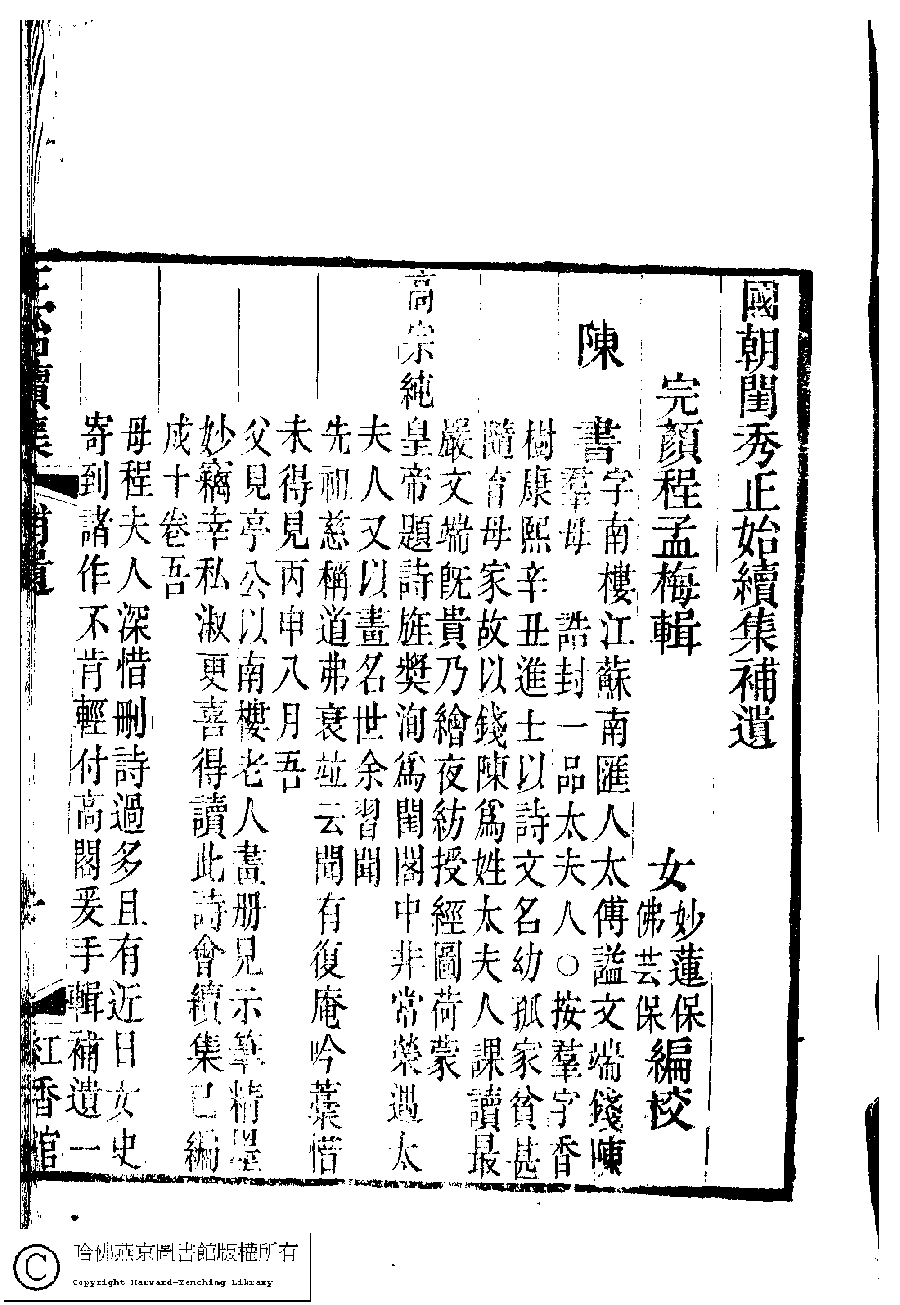 國朝閨秀正始續集補遺
完顏程孟梅輯
女妙蓮保
佛芸保編校
陳
書字南樓江蘇南匯人太傅諡文端錢陳
羣母 誥封一品太夫人○按羣字香
樹康熙辛丑進士以詩文名幼孤家貧甚
隨育母家故以錢陳爲姓太夫人課讀最
嚴文端旣貴乃繪夜紡授經圖荷蒙
高宗純皇帝題詩旌奬洵爲閨閣中非常榮遇太
夫人又以畫名世余習聞
先祖慈稱道弗衰竝云聞有復庵吟葉惜
未得見丙申八月吾
父見亭公以南樓老人畫册見示筆精墨
妙竊幸私淑更喜得讀此詩會續集已編
成十卷吾
母程夫人深惜刪詩過多且有近日女史
寄到諸作不肯輕付高閣爰手輯補遺一
正始續集 補遺 一 紅香館
哈佛燕京圖書館版權所有
Copyright Harvard-Yenching Library